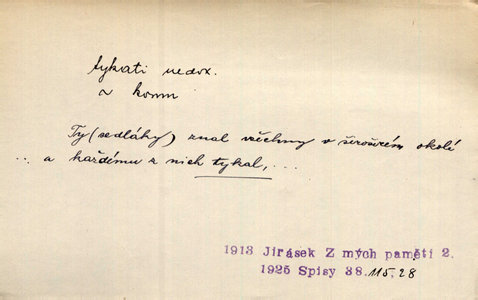 tykati nedok.
~ komu
Ty (sedláky) znal všechny v širošírém okolí
.. a každému z nich tykal, ...
1913 Jirásek Z mých pamětí 2.
1925 Spisy 38. 115.28